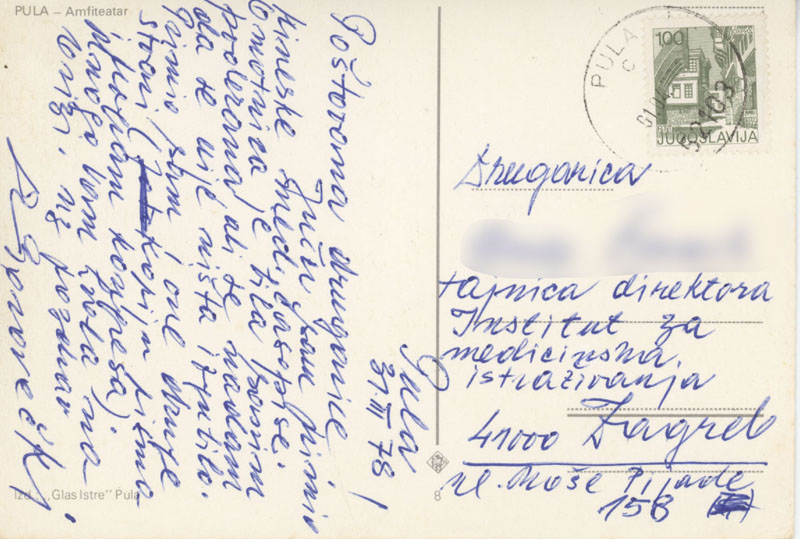 PULA – Amfiteatar
Pula
31. III 78
Poštovana drugarice!
Jučer sam primio
kineske med. časopise.
Omotnica je bila posvem
poderana ali se nadam
da se nije ništa izgubilo.
Primio sam i one druge
stvari (kopiju pisma
i program kongresa).
Mnogo Vam hvala na
brizi, uz pozdrav
Izd.: „Glas Istre” Pula
8
PULA
100
JUGOSLAVIJA
Drugarica
tajnica direktora
Institut za
medicinska
istraživanja
41000 Zagreb
ul. Moše Pijade
158